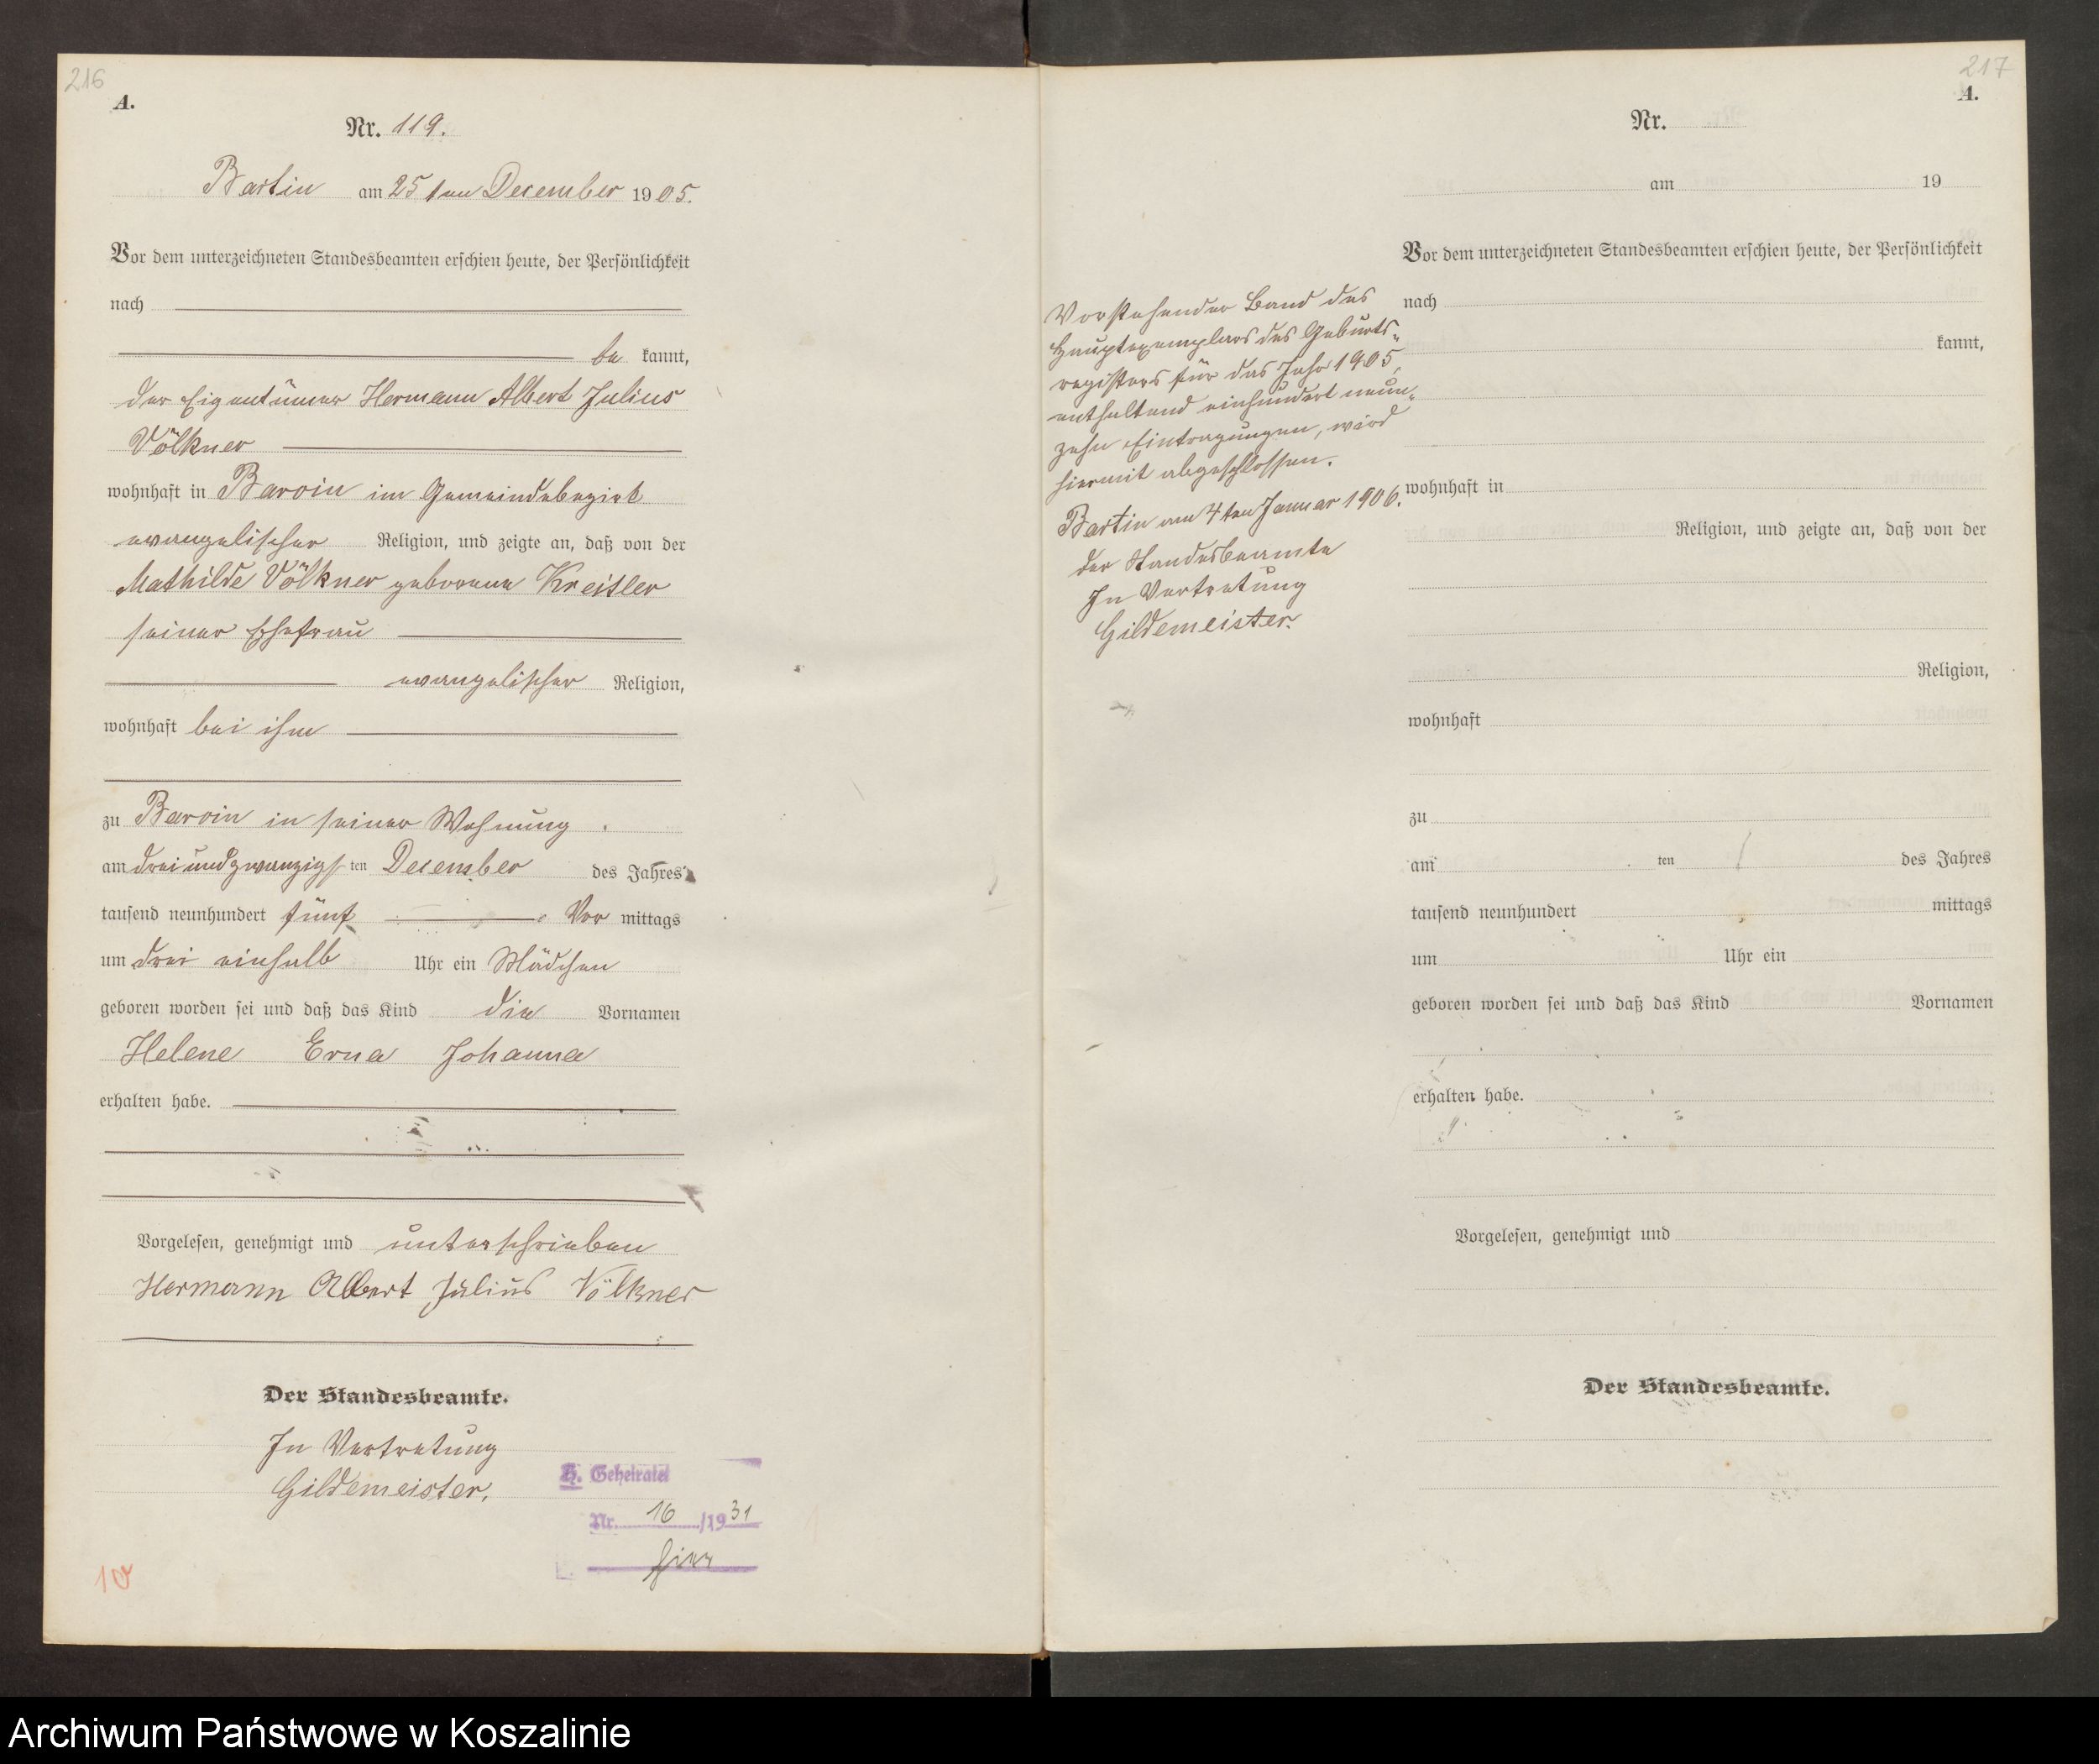 216
A.
Nr. 119.
Bartin am 25 ten December 1905.
Vor dem unterzeichneten Standesbeamten erschien heute, der Persönlichkeit
nach
be kannt,
der Eigentümer Hermann Albert Julius
Völkner
wohnhaft in Barvin im Gemeindebezirk
evangelischer Religion, und zeigte an, daß von der
Mathilde Völkner geborene Kreisler
seiner Ehefrau
evangelischer Religion,
wohnhaft bei ihm
zu Barvin in seiner Wohnung
am dreiundzwanzigsten December des Jahres
tausend neunhundert fünf Vor mittags
um drei einhalb Uhr ein Mädchen
geboren worden sei und daß das Kind die Vornamen
Helene Erna Johanna
erhalten habe.
Vorgelesen, genehmigt und unterschrieben
Hermann Albert Julius Völkner
Der Standesbeamte.
In Vertretung
Gildemeister.
H. Geheiratet
Nr. 16/1931
hier
10
217
A.
Nr.
am 19
Vor dem unterzeichneten Standesbeamten erschien heute, der Persönlichkeit
nach
kannt,
wohnhaft in
Religion, und zeigte an, daß von der
Religion,
wohnhaft
zu
am ten des Jahres
tausend neunhundert mittags
um Uhr ein
geboren worden sei und daß das Kind Vornamen
erhalten habe.
Vorgelesen, genehmigt und
Der Standesbeamte.
Vorstehender Band des
Hauptexemplars des Geburts-
registers für das Jahr 1905,
enthaltend einhundert neun-
zehn Eintragungen, wird
hiermit abgeschlossen.
Bartin am 4ten Januar 1906.
der Standesbeamte
In Vertretung
Gildemeister.
Archiwum Państwowe w Koszalinie